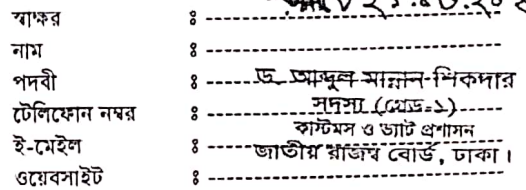 স্বাক্ষর :
নাম :
পদবী : ড. আব্দুল মান্নান শিকদার
টেলিফোন নম্বর : সদস্য (গ্রেড-১)
কাস্টমস ও ভ্যাট প্রশাসন
ই-মেইল : জাতীয় রাজস্ব বোর্ড, ঢাকা।
ওয়েবসাইট :